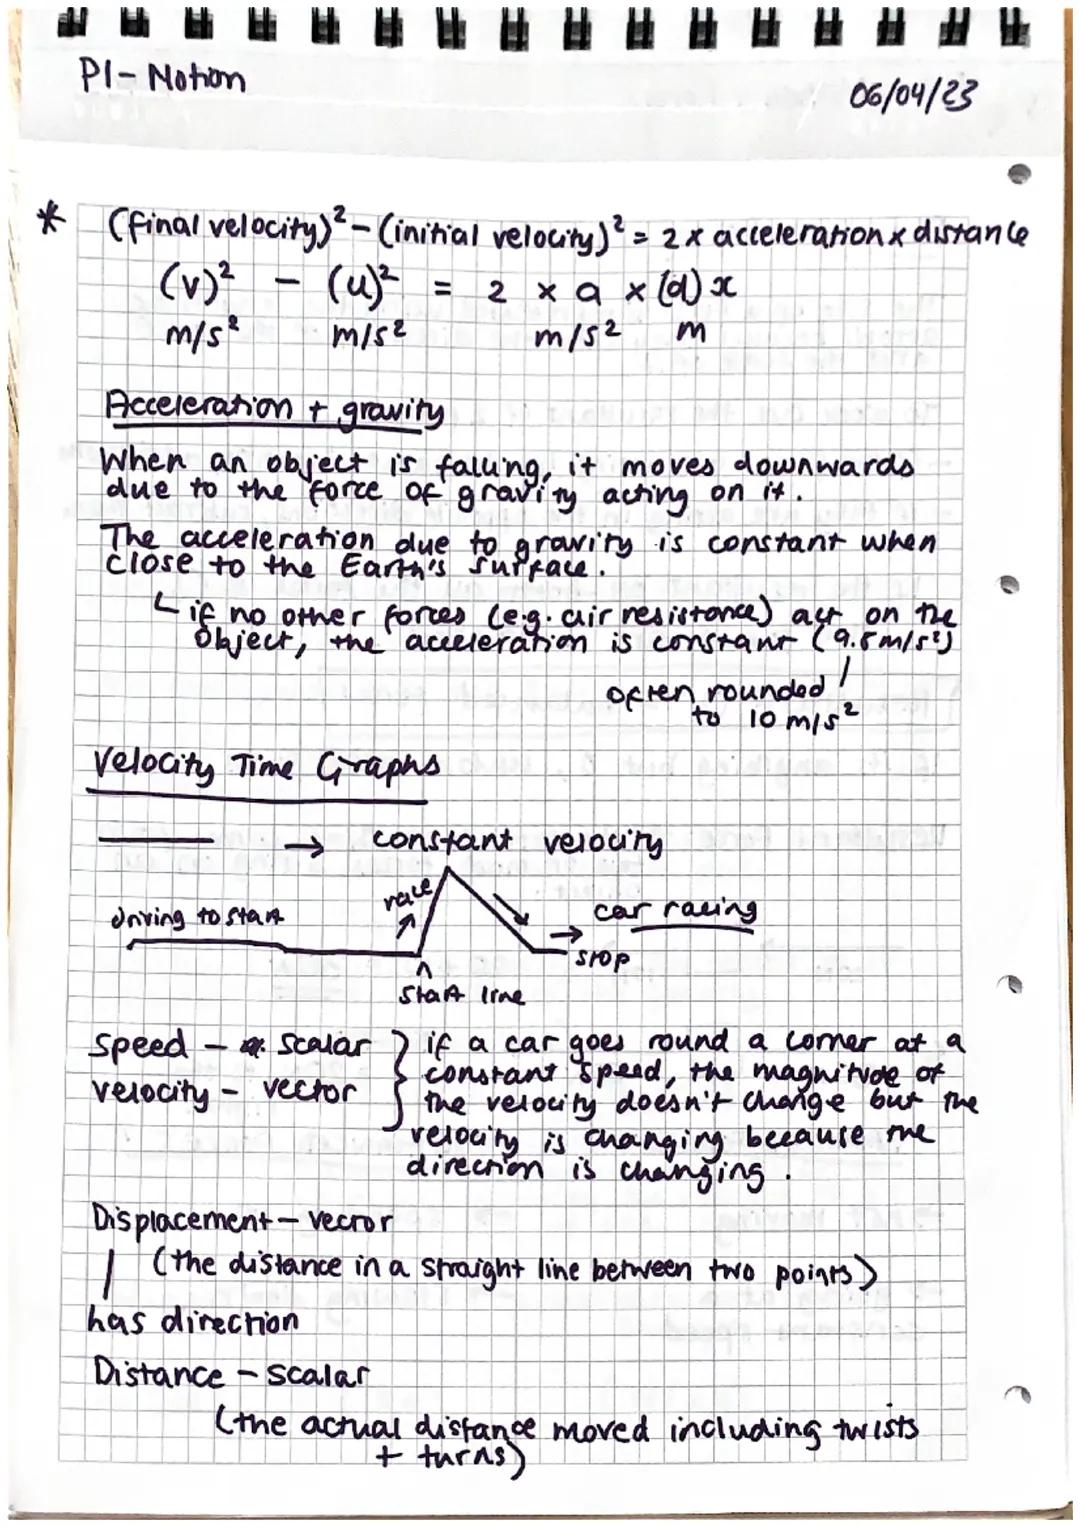 P1 - Motion
06/04/23
* (final velocity)² - (initial velocity)² = 2 x acceleration x distance
(v)² - (u)² = 2 x a x (d) x
m/s² m/s² m/s² m
Acceleration + gravity
When an object is falling, it moves downwards
due to the force of gravity acting on it.
The acceleration due to gravity is constant when
close to the Earth's surface.
if no other forces (e.g. air resistance) act on the
object, the acceleration is constant (9.8m/s²)
often rounded
to 10 m/s²
Velocity Time Graphs
→ constant velocity
race
driving to start
→ car racing
stop
start line
speed - scalar } if a car goes round a corner at a
velocity - vector constant speed, the magnitude of
the velocity doesn't change but the
velocity is changing because the
direction is changing.
Displacement - vector
(the distance in a straight line between two points)
has direction
Distance - scalar
(the actual distance moved including twists
+ turns)